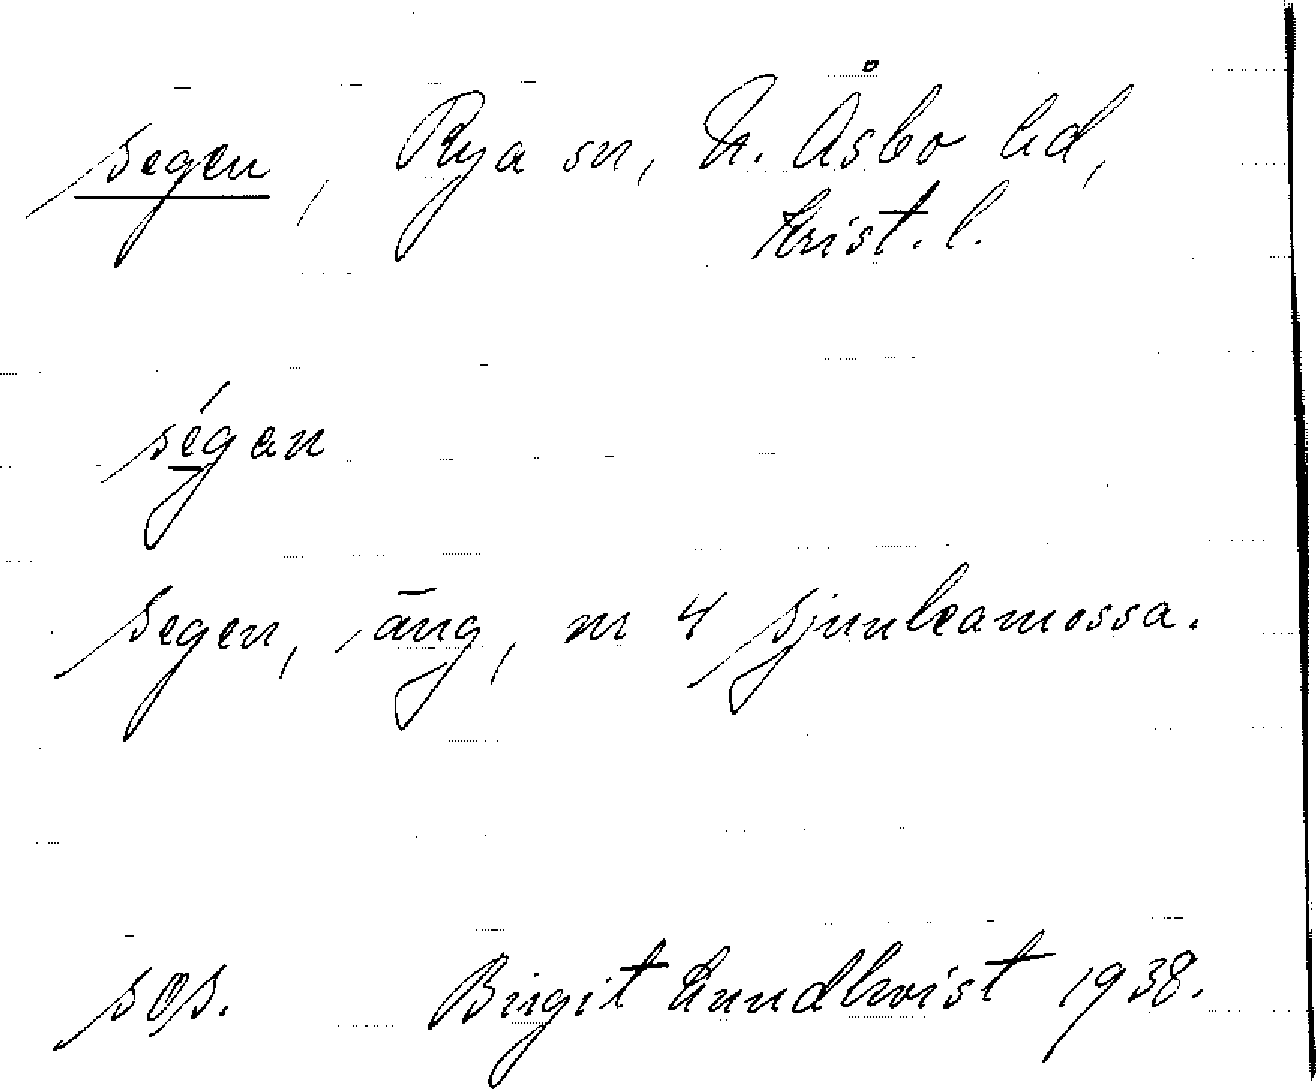 segen, Rya sn, N. Åsbo hd,
Krist. l.
segan
segen, äng, m 4 Sjunkamossa.
sos. Birgit Lundkvist 1938.